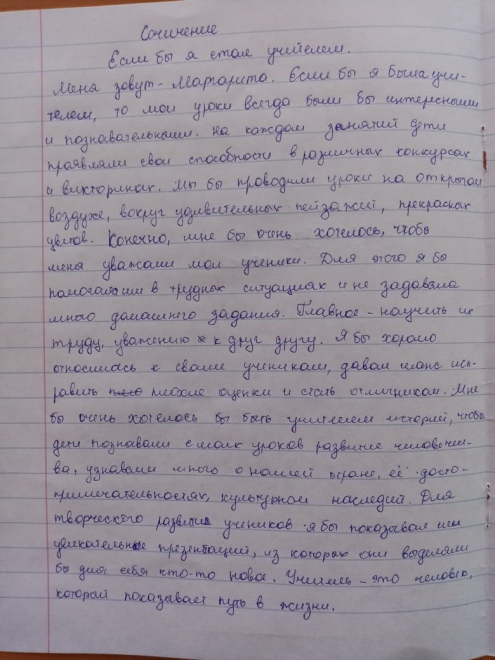 Сочинение
Если бы я стала учителем.
Меня зовут - Маргарита. Если бы я была учи-
телем, то мои уроки всегда были бы интересными
и познавательными. На каждом занятий дети
праявляли свои способности в различных конкурсах
и викторинах. Мы бы проводили уроки на открытом
воздухе, вокруг удивительных пейзажий, прекрасных
цветов. Конечно, мне бы очень хотелось, чтобы
меня уважали мои ученики. Для этого я бы
помогала им в трудных ситуациях и не задавала
много домашнего задания. Главное - научить их
труду, уважению к друг другу. Я бы хорошо
относилась к своим ученикам, давала шанс исп-
равить плохие оценки и стать отличником. Мне
бы очень хотелось бы быть учителем историй, чтобы
дети познавали с моих уроков развитие человечес-
ва, узнавали много о нашей стране, её досто-
примичательностях, культурном наследий. Для
творческого развития учеников я бы показывала им
увлекательные презентаций, из которых они выделяли
бы для себя что-то новое. Учитель - это человек,
который показывает путь в жизни.